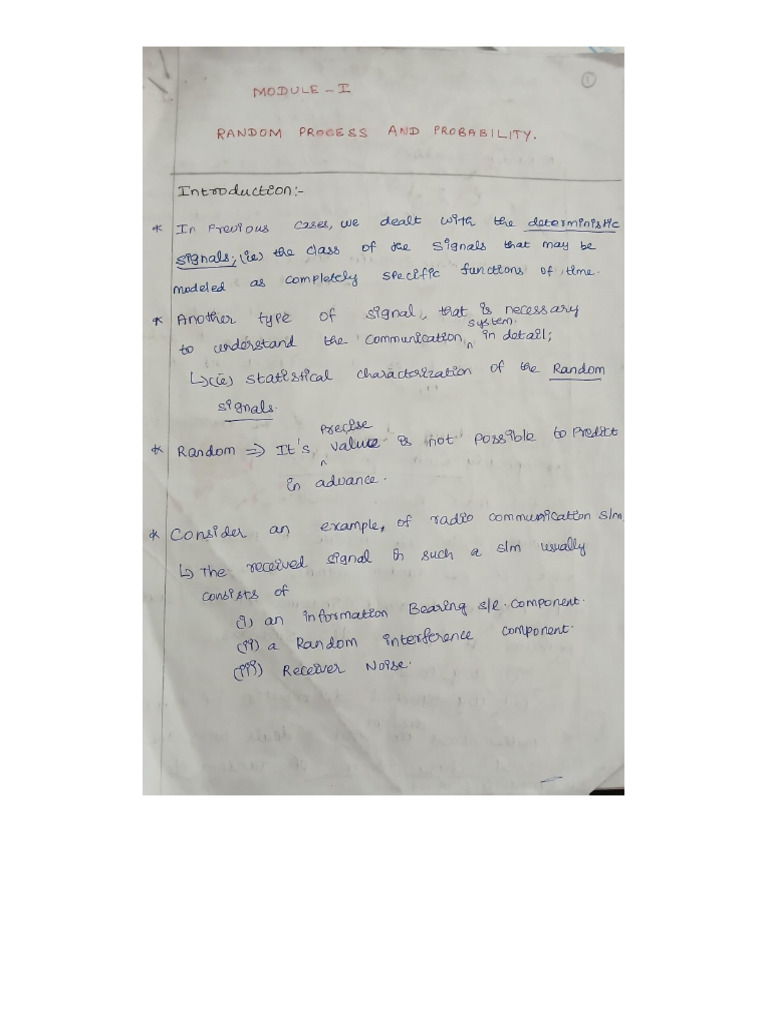 ①
MODULE - I
RANDOM PROCESS AND PROBABILITY.
Introduction:-
* In Previous cases, we dealt with the deterministic
signals; (ie) the class of the signals that may be
modeled as completely specific functions of time.
* Another type of signal, that is necessary
system.
to understand the communication ^ in detail;
↳ (ie) statistical characterization of the Random
signals.
precise
* Random => It's ^ value is not possible to predict
in advance.
* Consider an example, of radio communication s/m
↳ The received signal in such a s/m usually
consists of
(i) an information Bearing s/l. component.
(ii) a Random interference component.
(iii) Receiver Noise.